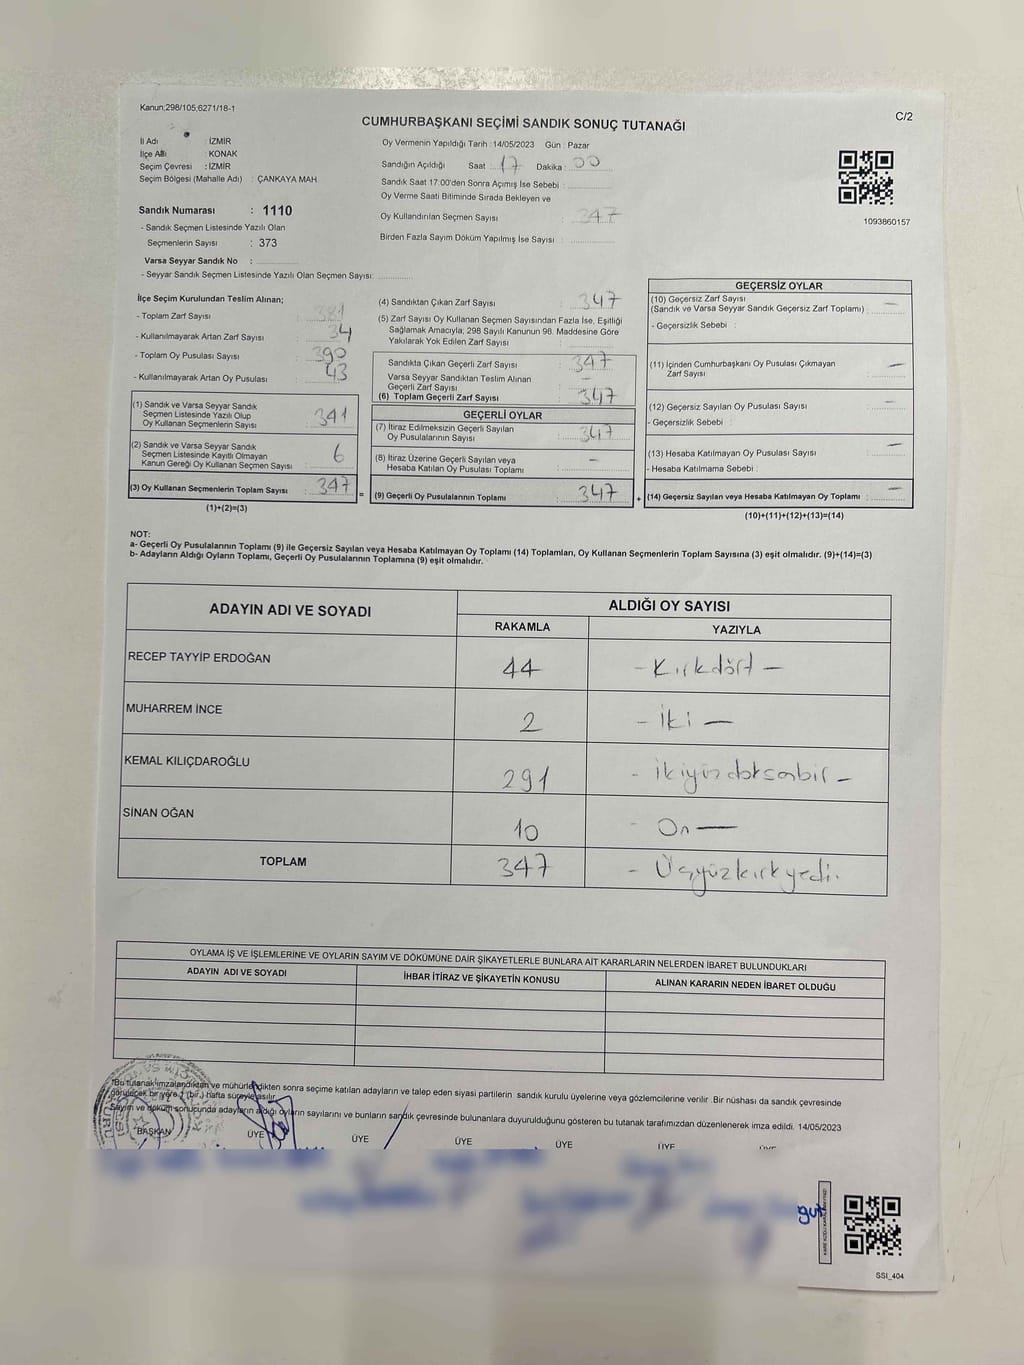 Kanun;298/105,6271/18-1
C/2
CUMHURBAŞKANI SEÇİMİ SANDIK SONUÇ TUTANAĞI
İl Adı : İZMİR
İlçe Adı : KONAK
Seçim Çevresi : İZMİR
Seçim Bölgesi (Mahalle Adı) : ÇANKAYA MAH.
Sandık Numarası : 1110
- Sandık Seçmen Listesinde Yazılı Olan
Seçmenlerin Sayısı : 373
Varsa Seyyar Sandık No :
- Seyyar Sandık Seçmen Listesinde Yazılı Olan Seçmen Sayısı:
Oy Vermenin Yapıldığı Tarih : 14/05/2023 Gün : Pazar
Sandığın Açıldığı Saat : 17 Dakika : 00
Sandık Saat 17:00'den Sonra Açımış İse Sebebi :
Oy Verme Saati Bitiminde Sırada Bekleyen ve
Oy Kullandırılan Seçmen Sayısı : 347
Birden Fazla Sayım Döküm Yapılmış İse Sayısı :
1093860157
İlçe Seçim Kurulundan Teslim Alınan;
- Toplam Zarf Sayısı : 381
- Kullanılmayarak Artan Zarf Sayısı : 34
- Toplam Oy Pusulası Sayısı : 390
- Kullanılmayarak Artan Oy Pusulası : 43
(1) Sandık ve Varsa Seyyar Sandık
Seçmen Listesinde Yazılı Olup
Oy Kullanan Seçmenlerin Sayısı : 341
(2) Sandık ve Varsa Seyyar Sandık
Seçmen Listesinde Kayıtlı Olmayan
Kanun Gereği Oy Kullanan Seçmen Sayısı : 6
(3) Oy Kullanan Seçmenlerin Toplam Sayısı : 347
(1)+(2)=(3)
=
(4) Sandıktan Çıkan Zarf Sayısı : 347
(5) Zarf Sayısı Oy Kullanan Seçmen Sayısından Fazla İse, Eşitliği
Sağlamak Amacıyla; 298 Sayılı Kanunun 98. Maddesine Göre
Yakılarak Yok Edilen Zarf Sayısı :
Sandıkta Çıkan Geçerli Zarf Sayısı : 347
Varsa Seyyar Sandıktan Teslim Alınan
Geçerli Zarf Sayısı : –
(6) Toplam Geçerli Zarf Sayısı : 347
GEÇERLİ OYLAR
(7) İtiraz Edilmeksizin Geçerli Sayılan
Oy Pusulalarının Sayısı : 347
(8) İtiraz Üzerine Geçerli Sayılan veya
Hesaba Katılan Oy Pusulası Toplamı : –
(9) Geçerli Oy Pusulalarının Toplamı : 347
+
GEÇERSİZ OYLAR
(10) Geçersiz Zarf Sayısı
(Sandık ve Varsa Seyyar Sandık Geçersiz Zarf Toplamı) : –
- Geçersizlik Sebebi :
(11) İçinden Cumhurbaşkanı Oy Pusulası Çıkmayan
Zarf Sayısı : –
(12) Geçersiz Sayılan Oy Pusulası Sayısı : –
- Geçersizlik Sebebi :
(13) Hesaba Katılmayan Oy Pusulası Sayısı : –
- Hesaba Katılmama Sebebi :
(14) Geçersiz Sayılan veya Hesaba Katılmayan Oy Toplamı : –
(10)+(11)+(12)+(13)=(14)
NOT:
a- Geçerli Oy Pusulalarının Toplamı (9) ile Geçersiz Sayılan veya Hesaba Katılmayan Oy Toplamı (14) Toplamları, Oy Kullanan Seçmenlerin Toplam Sayısına (3) eşit olmalıdır. (9)+(14)=(3)
b- Adayların Aldığı Oyların Toplamı, Geçerli Oy Pusulalarının Toplamına (9) eşit olmalıdır.
ADAYIN ADI VE SOYADI ALDIĞI OY SAYISI
RAKAMLA YAZIYLA
RECEP TAYYİP ERDOĞAN 44 - Kırkdört -
MUHARREM İNCE 2 - İki -
KEMAL KILIÇDAROĞLU 291 - ikiyüzdoksanbir -
SİNAN OĞAN 10 - On -
TOPLAM 347 - Üçyüzkırkyedi.
OYLAMA İŞ VE İŞLEMLERİNE VE OYLARIN SAYIM VE DÖKÜMÜNE DAİR ŞİKAYETLERLE BUNLARA AİT KARARLARIN NELERDEN İBARET BULUNDUKLARI
ADAYIN ADI VE SOYADI İHBAR İTİRAZ VE ŞİKAYETİN KONUSU ALINAN KARARIN NEDEN İBARET OLDUĞU
*Bu tutanak imzalandıktan ve mühürlendikten sonra seçime katılan adayların ve talep eden siyasi partilerin sandık kurulu üyelerine veya gözlemcilerine verilir .Bir nüshası da sandık çevresinde
görülecek bir yere 1 (bir ) hafta süreyle asılır.
Sayım ve döküm sonucunda adayların aldığı oyların sayılarını ve bunların sandık çevresinde bulunanlara duyurulduğunu gösteren bu tutanak tarafımızdan düzenlenerek imza edildi. 14/05/2023
BAŞKAN ÜYE ÜYE ÜYE ÜYE ÜYE ÜYE
SSI_404